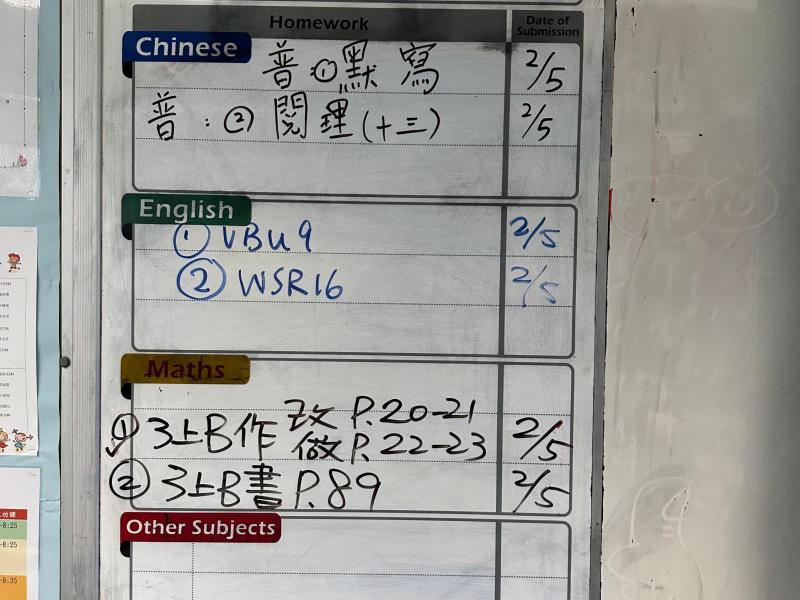 Homework
Date of Submission
Chinese
普:①默 寫 2/5
普:② 閱 理(十三) 2/5
English
① VBU9 2/5
② WSR16 2/5
Maths
① 3上B作 改 P.20-21
做 P.22-23 2/5
② 3上B書 P.89 2/5
Other Subjects
-8:25
-8:25
-9:35